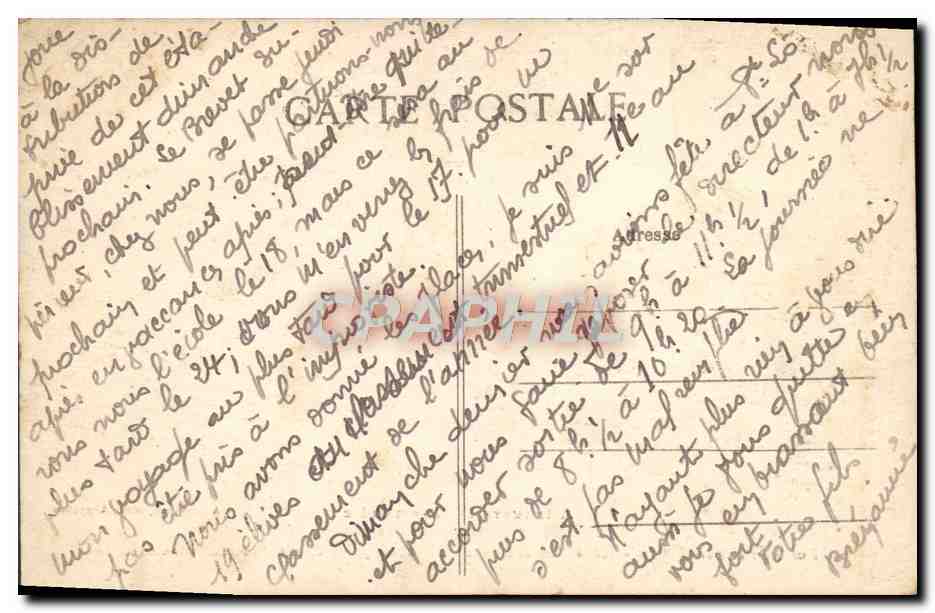 CARTE POSTALE
Adresse
CPAPHIL
joue
à la dis-
tribution de
prix de cet éta-
blissement dimanche
prochain. Le Brevet du-
périeur, chez nous, se passe jeudi
prochain et peut-être partirons-nous
après en vaccances après; peut-être quitte-
rons nous l'école le 18, mais ce sera au
plus tard le 24; vous m'enverrez les frais de
mon voyage au plus tard pour le 17 pour ne
pas être pris à l'improviste.
Nous avons donné les places, je suis 11e sur
19 élèves au classement trimestriel et 11e au
classement de l'année.
Dimanche dernier nous avions fête à St Lô
et pour nous faire reposer le directeur nous
accorder sortie de 9h à 11h 1/2, de 1h à 7h 1/2
puis de 8h 1/2 à 10h 20. La journée ne
s'est pas mal remplie
N'ayant plus rien à vous dire
aussi je vous quitte en
vous embrassant bien
fort
Votre fils